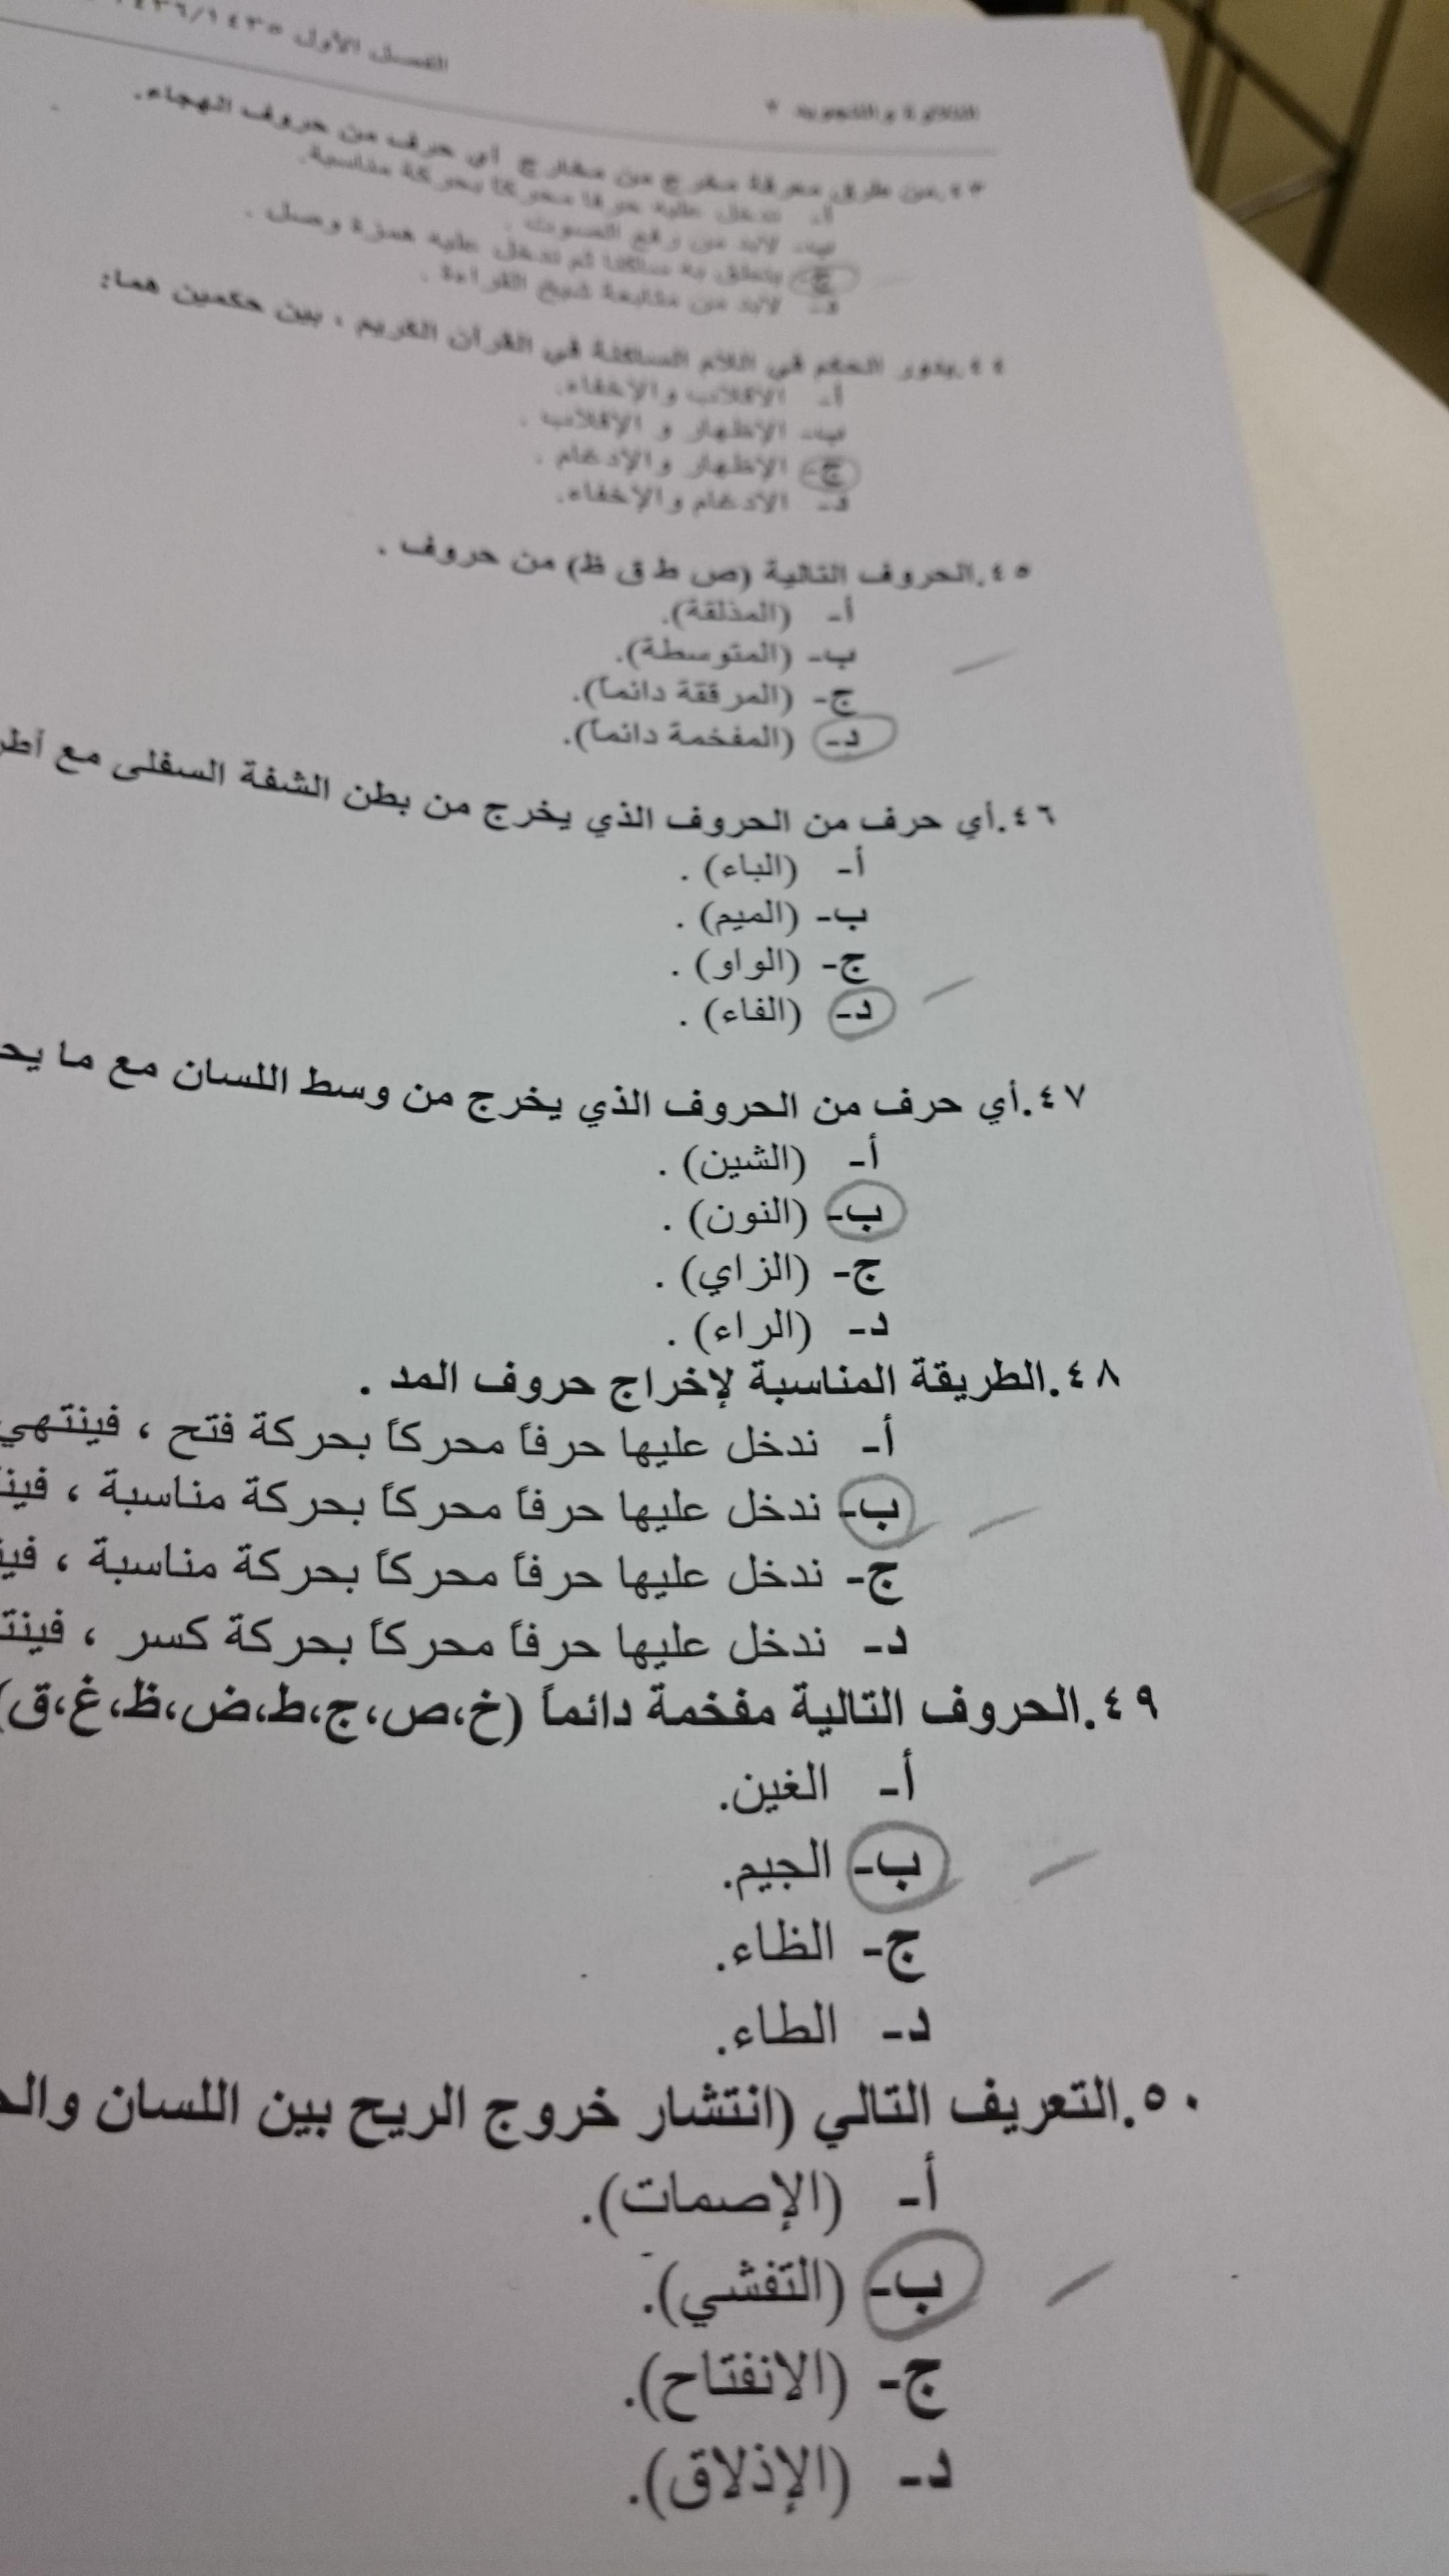 الفصل الأول ١٤٣٦/١٤٣٥
التلاوة والتجويد
٤٣.من طرق معرفة مخرج من مخارج أي حرف من حروف الهجاء.
أ- ندخل عليه حرفا محركا بحركة مناسبة.
ب- لابد من رفع الصوت .
ج- ينطق به ساكنا ثم ندخل عليه همزة وصل .
د- لابد من متابعة شيخ القراءة .
٤٤.يدور الحكم في اللام الساكنة في القرآن الكريم ، بين حكمين هما:
أ- الإقلاب والإخفاء.
ب- الإظهار و الإقلاب .
ج- الإظهار والإدغام .
د- الإدغام والإخفاء.
٤٥.الحروف التالية (ص ط ق ظ) من حروف .
أ- (المذلقة).
ب- (المتوسطة).
ج- (المرققة دائماً).
د- (المفخمة دائماً).
٤٦.أي حرف من الحروف الذي يخرج من بطن الشفة السفلى مع
أ- (الباء) .
ب- (الميم) .
ج- (الواو) .
د- (الفاء) .
٤٧.أي حرف من الحروف الذي يخرج من وسط اللسان مع ما
أ- (الشين) .
ب- (النون) .
ج- (الزاي) .
د- (الراء) .
٤٨.الطريقة المناسبة لإخراج حروف المد .
أ- ندخل عليها حرفاً محركاً بحركة فتح ، فينتهي
ب- ندخل عليها حرفاً محركاً بحركة مناسبة ،
ج- ندخل عليها حرفاً محركاً بحركة مناسبة ،
د- ندخل عليها حرفاً محركاً بحركة كسر ،
٤٩.الحروف التالية مفخمة دائماً (خ،ص،ج،ط،ض،ظ،غ،ق)
أ- الغين.
ب- الجيم.
ج- الظاء.
د- الطاء.
٥٠.التعريف التالي (انتشار خروج الريح بين اللسان
أ- (الإصمات).
ب- (التفشي).
ج- (الانفتاح).
د- (الإذلاق).